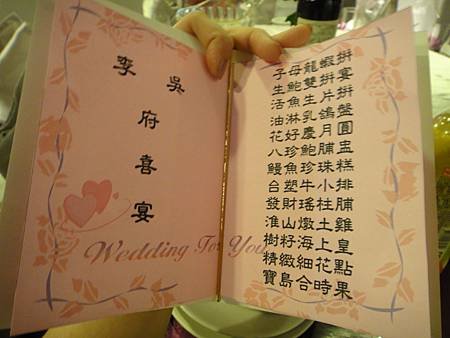 李 吳
府
喜
宴
Wedding For You
子母龍蝦拼
生鮑雙拼宴
活魚生片拼
油淋乳鴿盤
花好慶月圓
八珍鮑脯盅
鰻魚珍珠糕
台塑牛小排
發財瑤柱脯
淮山燉土雞
樹籽海上皇
精緻細花點
寶島合時果